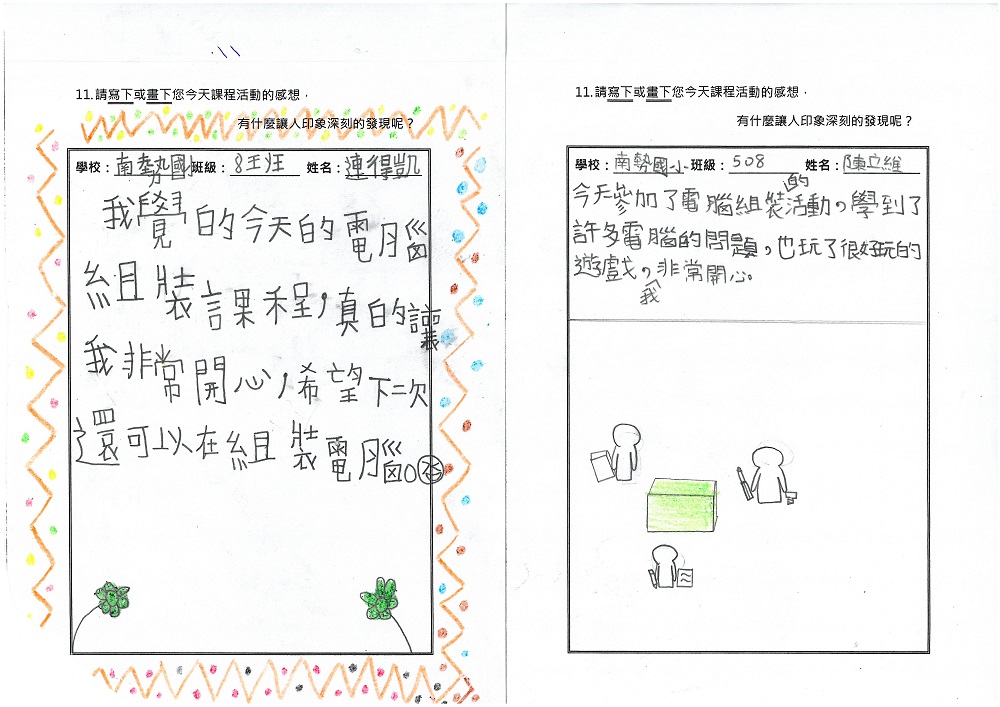 11.請寫下或畫下您今天課程活動的感想，
有什麼讓人印象深刻的發現呢？
學校：南勢國小班級： 姓名：連得凱
我覺的今天的電腦
組裝課程，真的讓
我非常開心，希望下二次
還可以在組裝電腦。
11.請寫下或畫下您今天課程活動的感想，
有什麼讓人印象深刻的發現呢？
學校：南勢國小班級：508 姓名：陳立維
今天參加了電腦組裝的活動，學到了
許多電腦的問題，也玩了很好玩的
遊戲，我非常開心。